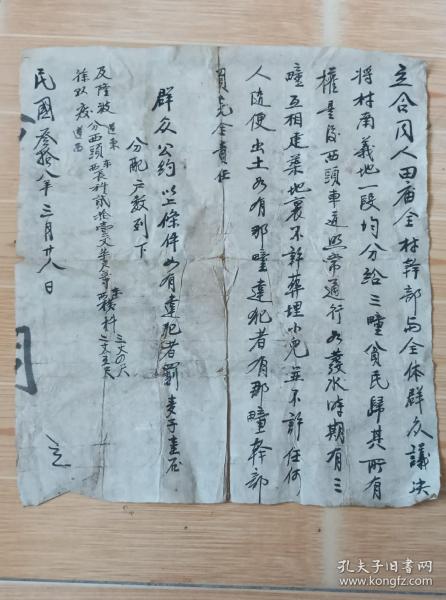 立合同人田庙全村幹部与全体群众議决
将村南義地一段均分给三疃貧民歸其所有
權是后西頭車道照常通行如發水時期有三
疃互相建築地裏不許葬埋小児並不許任何
人随便出土如有那疃違犯者有那疃幹部
負完全責任
群众公約以上條件如有違犯者罰麦子壹石
分配亩数列下
民國叁拾八年三月廿八日
立
孔夫子旧书网
www.kongfz.com